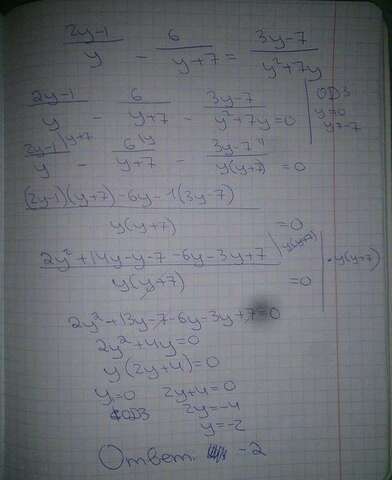 (2y-1)/y - 6/(y+7) = (3y-7)/(y²+7y)
(2y-1)/y - 6/(y+7) - (3y-7)/(y²+7y) = 0
ОДЗ
y≠0
y≠-7
(2y-1)/y |y+7 - 6/(y+7) |y - (3y-7)/(y(y+7)) |1 = 0
((2y-1)(y+7)-6y-1(3y-7))/(y(y+7)) = 0
(2y²+14y-y-7-6y-3y+7)/(y(y+7)) |y(y+7) = 0 | ·y(y+7)
2y²+13y-7-6y-3y+7=0
2y²+4y=0
y(2y+4)=0
y=0 2y+4=0
ОДЗ 2y=-4
y=-2
Ответ: -2